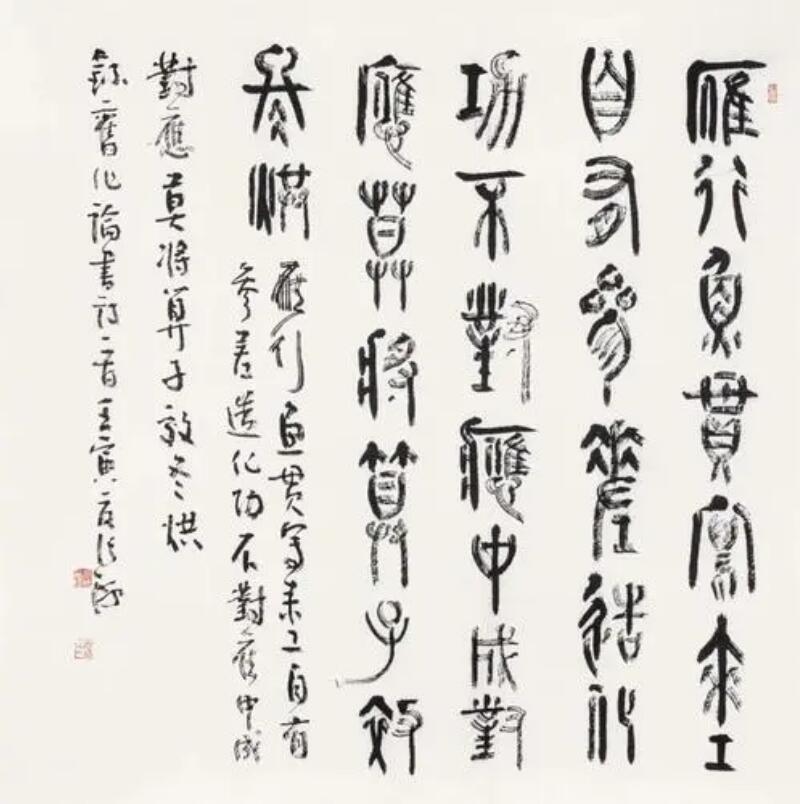 雁行魚貫寫來工
自有參差造化
功不對應中成對
應莫將算子效
冬烘
雁行魚貫寫來工自有
參差造化功不對應中成
對應莫將算子效冬烘
錄舊作論書詩一首壬寅